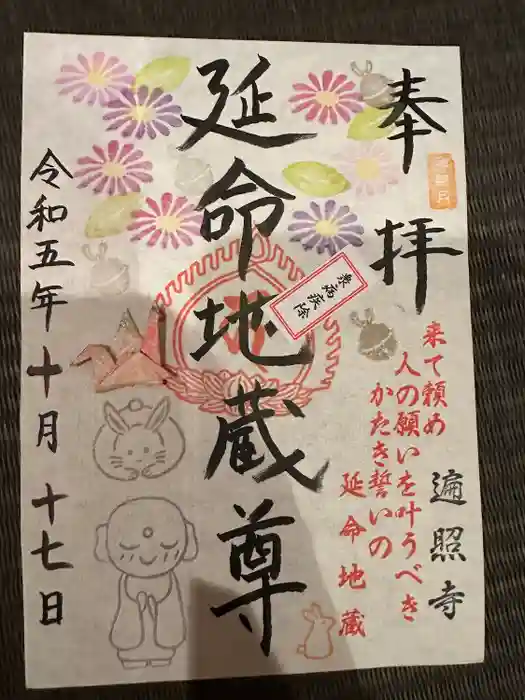 奉拝
延命地蔵尊
衆病疾除
令和五年十月十七日
来て頼め
人の願いを叶うべき
かたき誓いの
延命地蔵
遍照寺